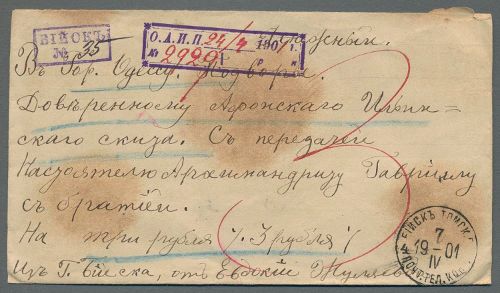 БІЙСКЪ
№ 35
О.А.И.П. 24/4 1901 г.
№ 2929 Р
Денежный.
Въ Гор. Одессу. Подворье
Довѣренному Афонскаго Ильин=
скаго скита. Съ передачіи
Настоятелю Архимандриту Гавріилу
съ братіей.
На три рубля /. 3 рубля /.
Изъ Г. Бійска, отъ Евдокіи
БІЙСКЪ ТОМСК.
7
19-01
IV
ПОЧТ.ТЕЛ.КОН.